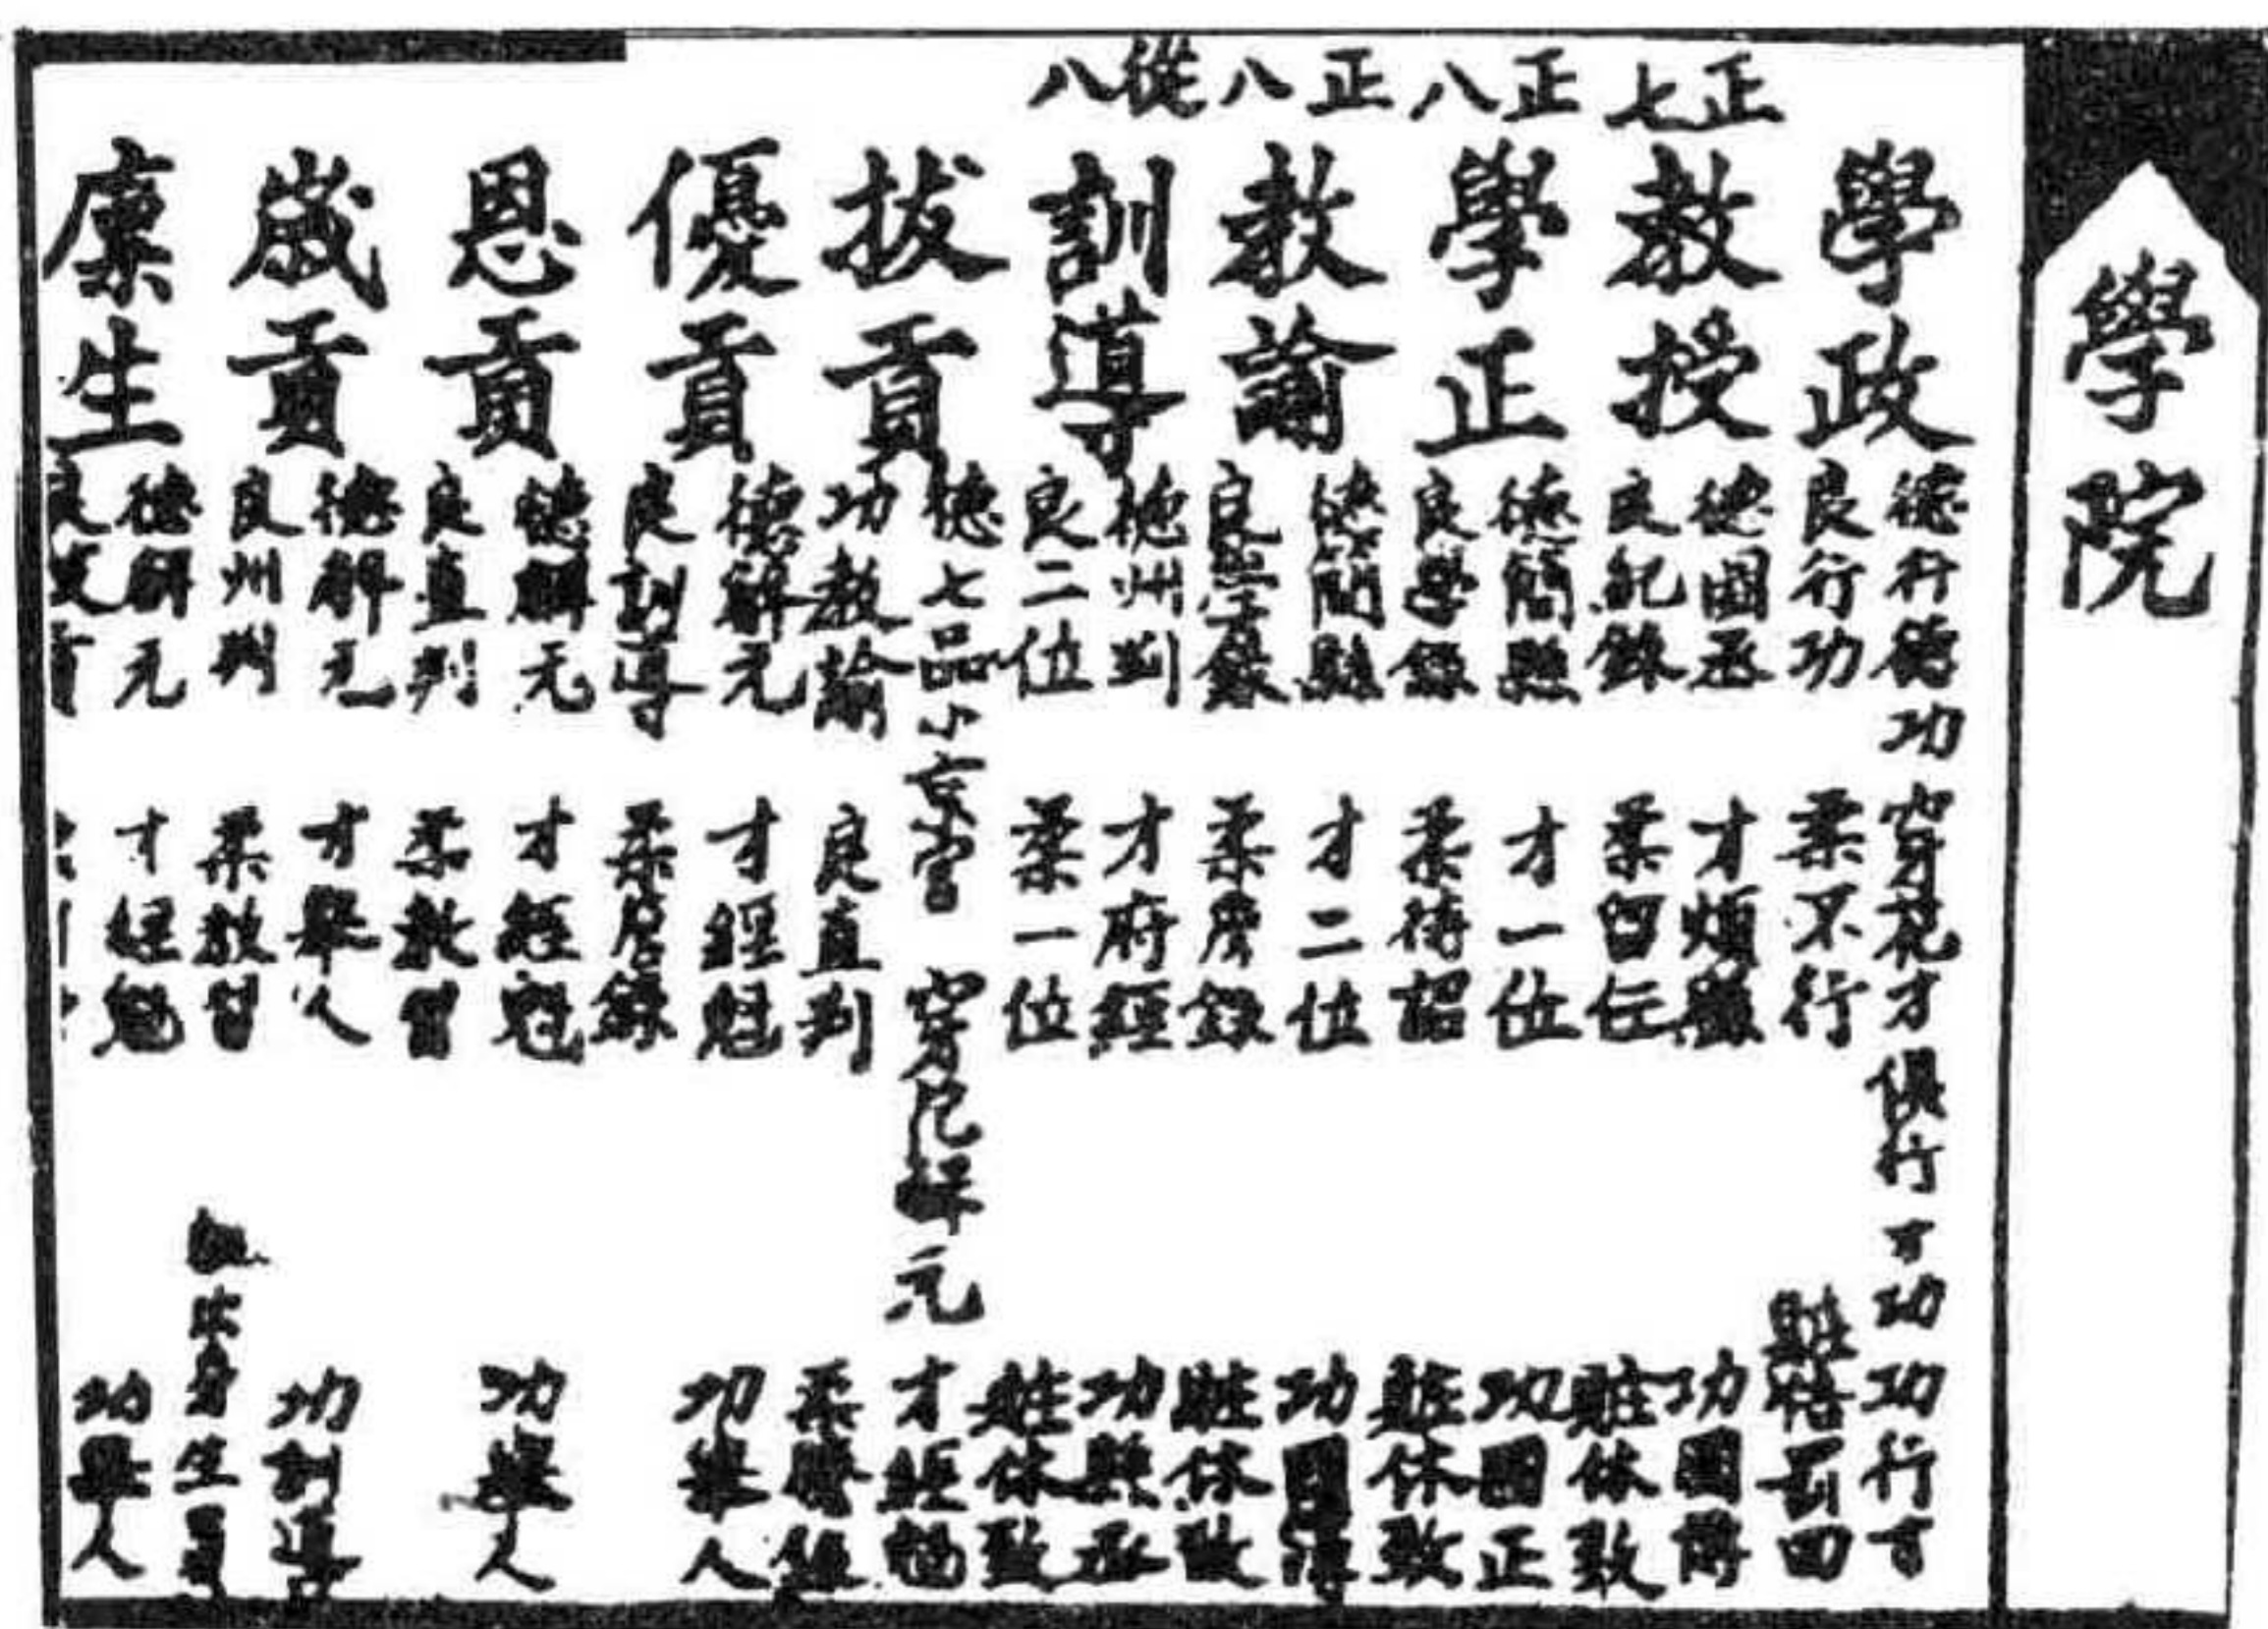 學院
正七
正八
正八
從八
學政
德行德功 穿花才俱行
良行功 柔不行
功行
教授
德國丞 才煩縣 功國博
良紀錄 柔留任 賍休致
學正
德簡縣 才一位 功國正
良學錄 柔待詔 賍休致
教諭
德簡縣 才二位 功國簿
良學錄 柔謄錄 賍休致
訓導
德州判 才府經 功縣丞
良二位 柔一位 賍休致
拔貢
德七品小京官 穿花解元 才經魁
功教諭 良直判 柔謄錄
優貢
德解元 才經魁 功舉人
良訓導 柔謄錄
恩貢
德解元 才經魁 功舉人
良直判 柔教習
歲貢
德解元 才舉人 功訓導
良州判 柔教習
廩生
德解元 才經魁 功舉人